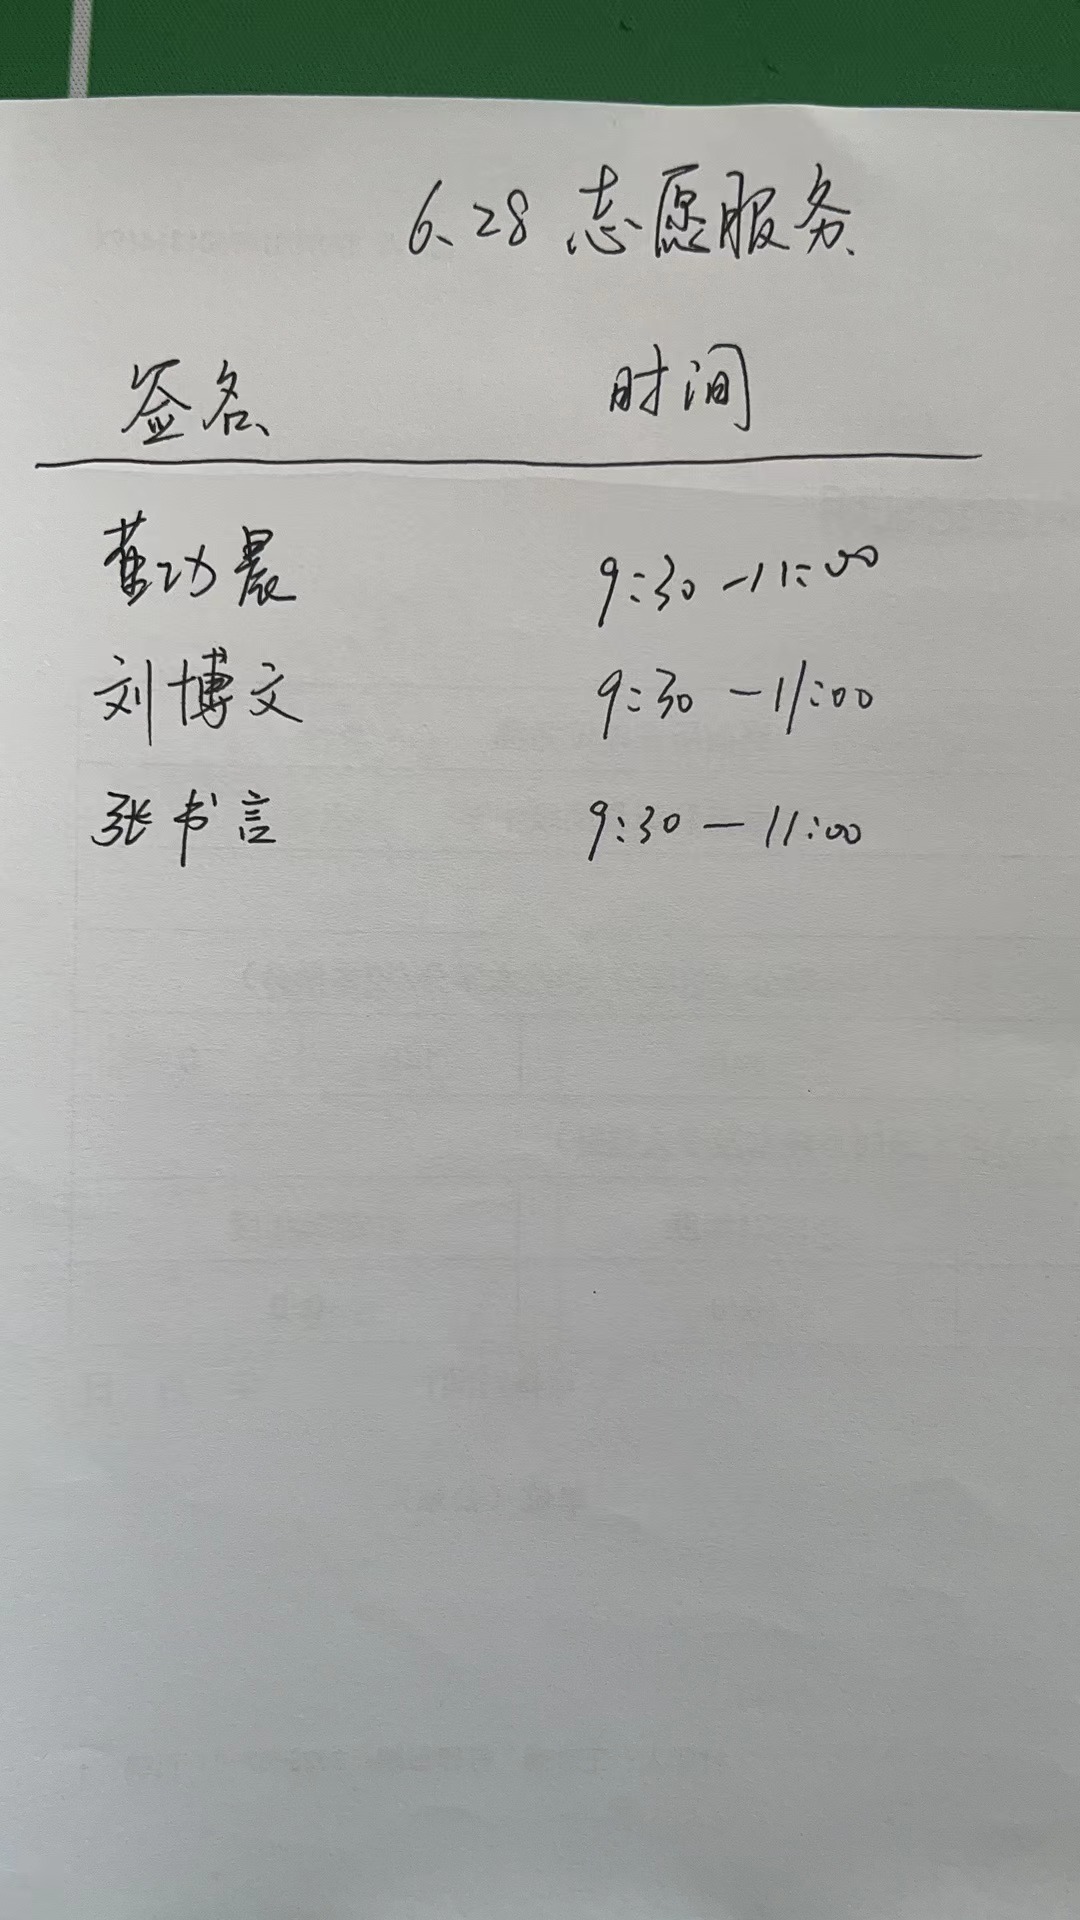 6.28 志愿服务
签名 时间
董功晨 9:30-11:00
刘博文 9:30-11:00
张书言 9:30-11:00